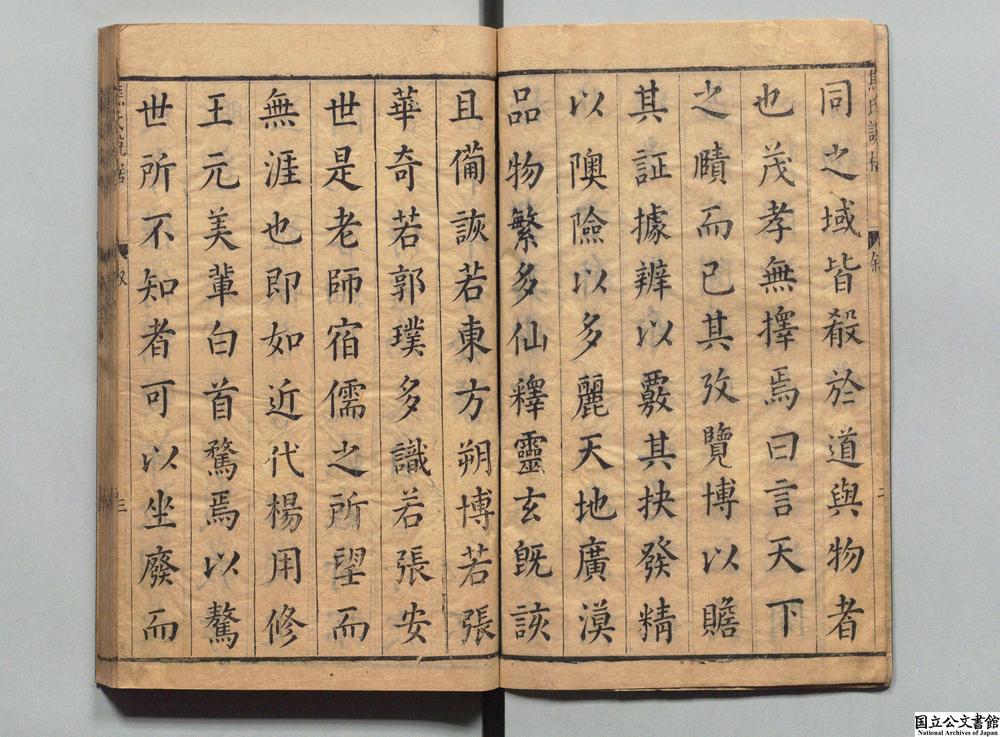 同之域皆殺於道與物者
也茂孝無擇焉曰言天下
之賾而已其攷覽博以贍
其証據辨以覈其抉發精
以隩險以多麗天地廣漠
品物繁多仙釋靈玄既該
且備詼若東方朔博若張
華奇若郭璞多識若張安
世是老師宿儒之所望而
無涯也即如近代楊用修
王元美輩白首騖焉以驁
世所不知者可以坐廢而
三
国立公文書館
National Archives of Japan